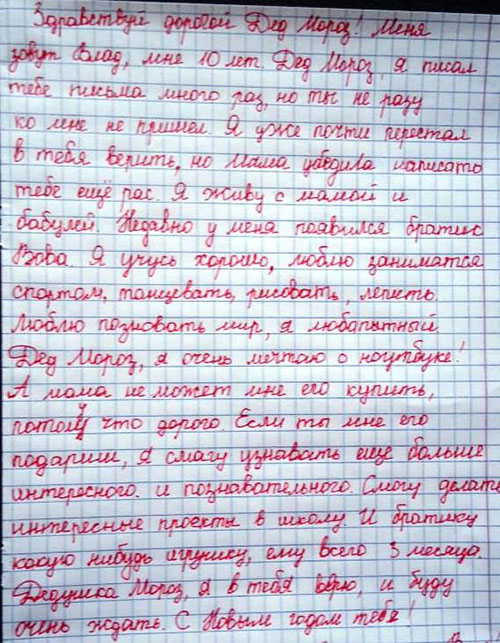 Здравствуй дорогой Дед Мороз! Меня
зовут Влад, мне 10 лет. Дед Мороз, я писал
тебе письма много раз, но ты не разу
ко мне не пришел. Я уже почти перестал
в тебя верить, но мама убедила написать
тебе ещё рас. Я живу с мамой и
бабулей. Недавно у меня появился братик
Вова. Я учусь хорошо, люблю заниматся
спортом, танцевать, рисовать, лепить.
Люблю позновать мир, я любапытный.
Дед Мороз, я очень мечтаю о ноутбуке!
А мама не может мне его купить,
потому что дорого. Если ты мне его
подариш, я смагу узнавать ещё больше
интересного. и познавательного. Смогу делать
интересные проекты в школу. И братику
какую нибудь игрушку, ему всего 3 месяца.
Дедушка Мороз, я в тебя верю, и буду
очень ждать. С Новым годом тебя!